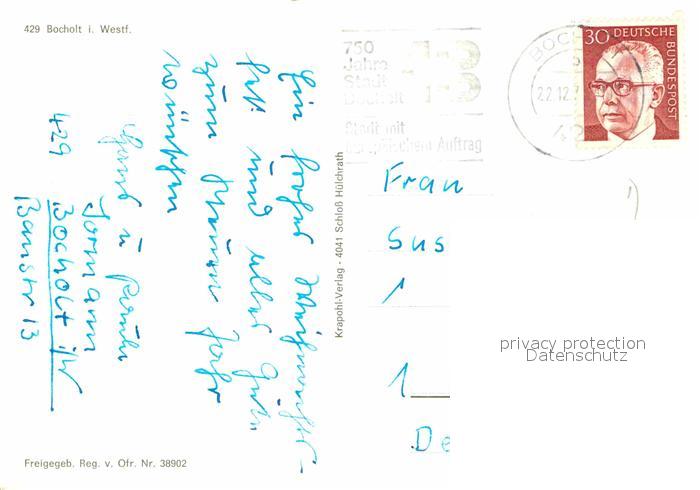 429 Bocholt i. Westf.
Ein frohes Weihnachts-
fest und alles Gute
zum Neuen Jahr
wünschen
Familie
429 Bocholt i/W
Baustr 13
Krapohl-Verlag - 4041 Schloß Hülchrath
Freigegeb. Reg. v. Ofr. Nr. 38902
750
Jahre
Stadt
Bocholt
Stadt mit
europäischem Auftrag
BOCH
22.12.7
42
30 DEUTSCHE
BUNDESPOST
Frau
Sus
1
1
De
privacy protection
Datenschutz